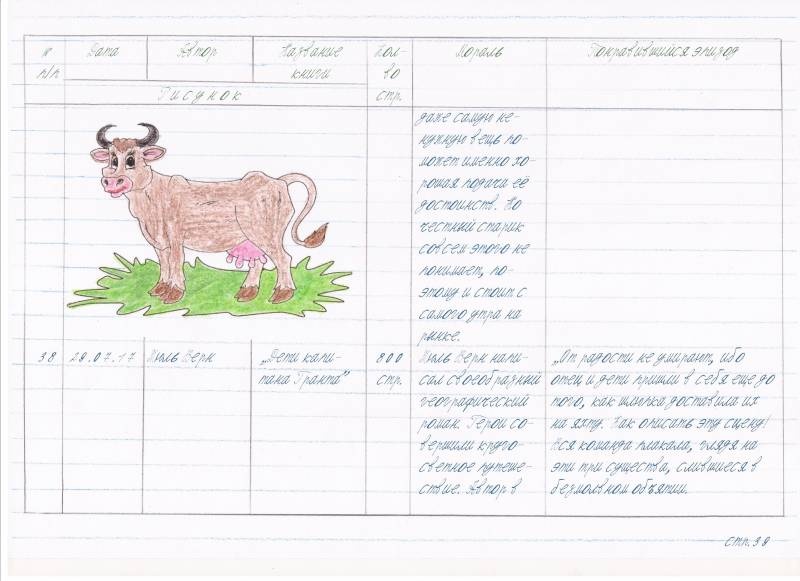 № п/п
Дата
Автор
Название
книги
Кол-
во
стр.
Мораль
Понравившийся эпизод
Рисунок
даже самую не-
нужную вещь по-
может именно хо-
рошая подача её
достоинств. Но
честный старик
совсем этого не
понимает, по-
этому и стоит с
самого утра на
рынке.
38
29.07.17
Жюль Верн
„Дети капи-
тана Гранта"
800
стр.
Жюль Верн напи-
сал своеобразный
географический
роман. Герои со-
вершили круго-
светное путеше-
ствие. Автор в
„От радости не умирают, ибо
отец и дети пришли в себя еще до
того, как шлюпка доставила их
на яхту. Как описать эту сцену!
Вся команда плакала, глядя на
эти три существа, слившиеся в
безмолвном объятии.
стр. 39